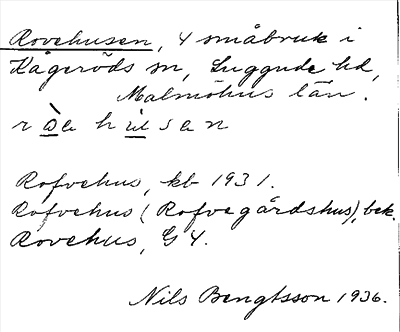 Rovehusen, 4 småbruk i
Kågeröds sn, Luggude hd,
Malmöhus län.
r ò̲a h u̲s a n
Rofvehus, kb 1931.
Rofvehus (Rofvegårdshus), bek.
Rovehus, G 4.
Nils Bengtsson 1936.